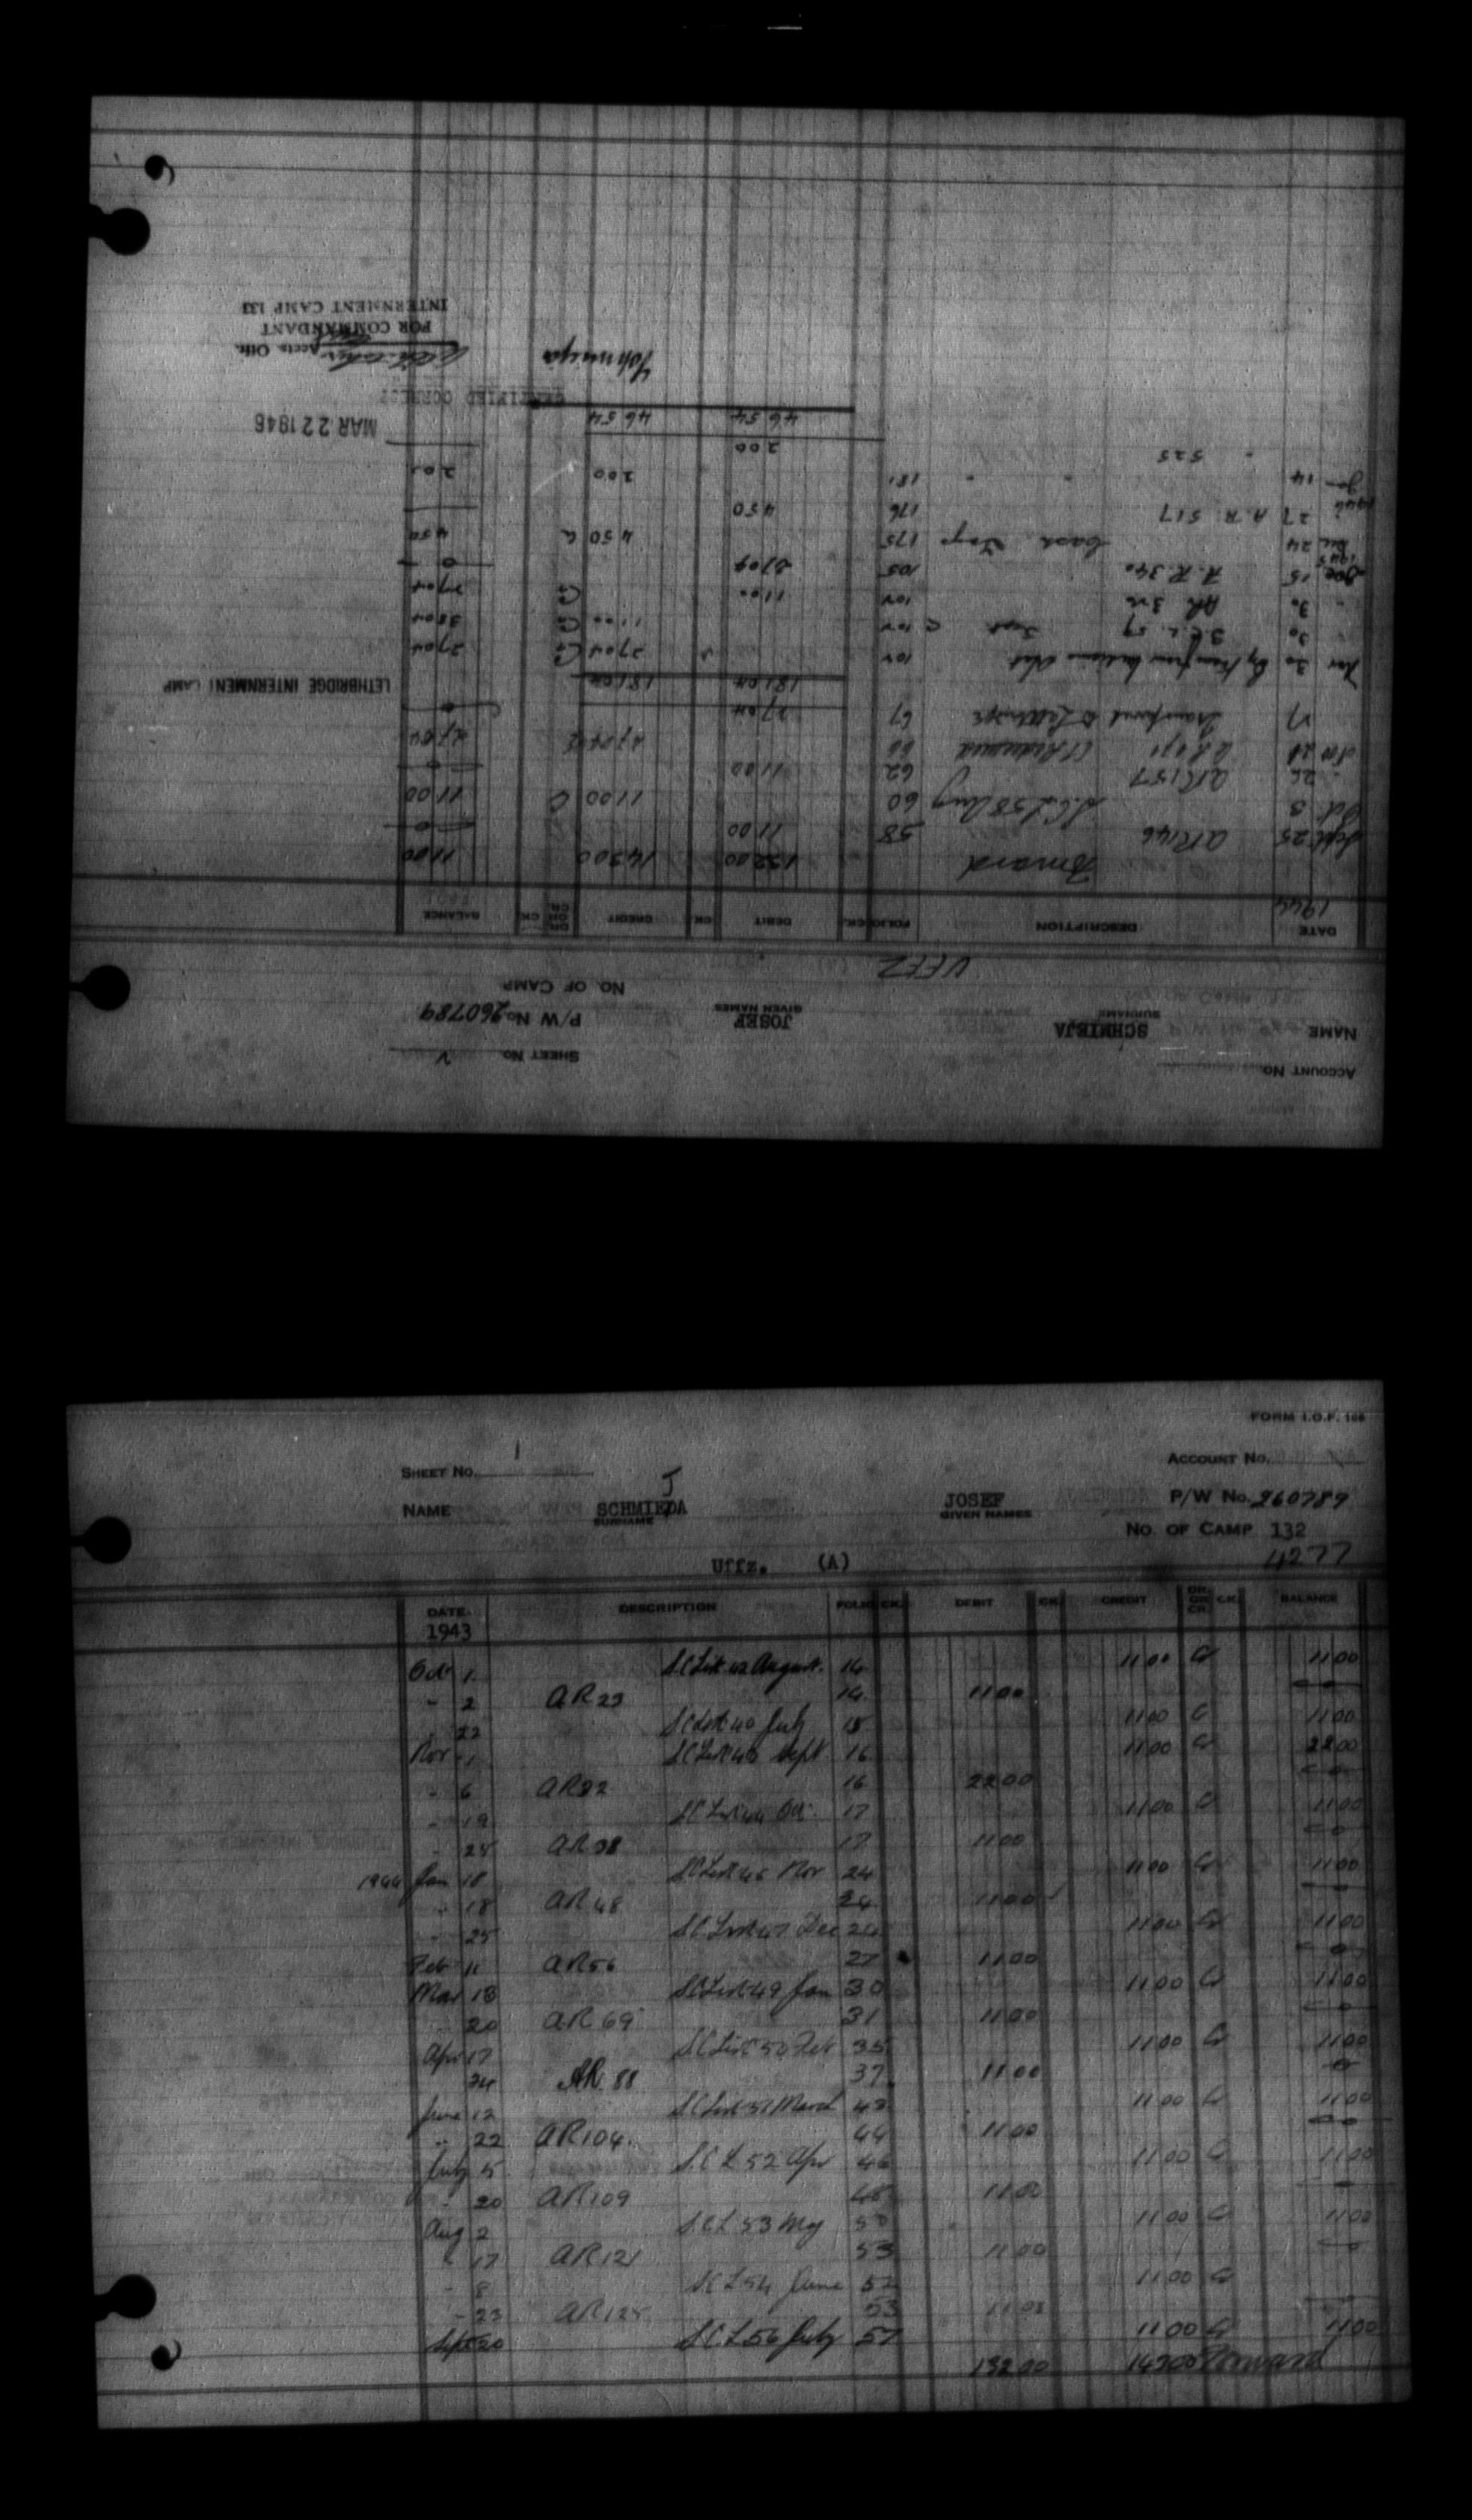 SHEET No. V
ACCOUNT No.
NAME SCHMIEJA JOSEF P/W No. 260789
SURNAME GIVEN NAMES
NO. OF CAMP
UFFZ
DATE DESCRIPTION FOLIO CK. DEBIT CK. CREDIT DR. OR CR. CK. BALANCE
1944
Forward 132 00 143 00 11 00
Sept 25 AR 146 58 11 00
Oct 3 S.C.L 58 Aug 60 11 00 C 11 00
" 26 AR 157 62 11 00
66 27 04
17 Transferred to Lethbridge 67 27 04
LETHBRIDGE INTERNMENT CAMP
181 04 181 04
Nov 30 10V 27 04 Cr 27 04
" 30 S.C.L. 59 Sept C 10V 11 00 Cr 38 04
" 30 AR 10V 11 00 Cr 27 04
15 A.R. 340 105 0
Dec 24 175 4 50 4 50
1946 27 A.R. 517 176 4 50
Jan 14 " " 181 2 00 2 00
" 525 2 00
46 54 46 54
MAR 22 1946
CERTIFIED CORRECT
Accts Offr.
FOR COMMANDANT
INTERNMENT CAMP 133
FORM I.O.F. 108
SHEET No. 1
ACCOUNT No.
J
NAME SCHMIEDA JOSEF P/W No. 260789
SURNAME GIVEN NAMES
NO. OF CAMP 132
Uffz. (A) 4277
DATE DESCRIPTION FOLIO CK. DEBIT CK. CREDIT DR. OR CR. CK. BALANCE
1943
Oct 1 S.C List 42 August. 14 11 00 Cr 11 00
" 2 AR 23 14 11 00
22 SC List 40 July 15 11 00 Cr 11 00
Nov 1 SC List 43 Sept 16 11 00 Cr 22 00
" 6 AR 32 16 22 00
" 19 SC List 44 Oct. 17 11 00 Cr 11 00
" 25 AR 38 17 11 00
1944 Jan 18 SC List 45 Nov 24 11 00 Cr 11 00
" 18 AR 48 24 11 00
" 25 S.C. List 47 Dec 24 11 00 Cr 11 00
Feb 11 AR 56 27 11 00
Mar 18 SC List 49 Jan 30 11 00 Cr 11 00
" 20 AR 69 31 11 00
Apr 17 SC List 50 Feb 35 11 00 Cr 11 00
24 AR. 88 37 11 00
June 12 S.C List 51 March 43 11 00 Cr 11 00
" 22 AR 104. 44 11 00
July 5 S.C L 52 Apr 46 11 00 Cr 11 00
" 20 AR 109 48 11 00
Aug 2 S.C L 53 May 50 11 00 Cr 11 00
" 17 AR 121 53 11 00
" 8 SC L 54 June 52 11 00 Cr
" 23 AR 125 53 11 00
Sept 20 S.C L 56 July 57 11 00 Cr 11 00
132 00 143 00 Forward